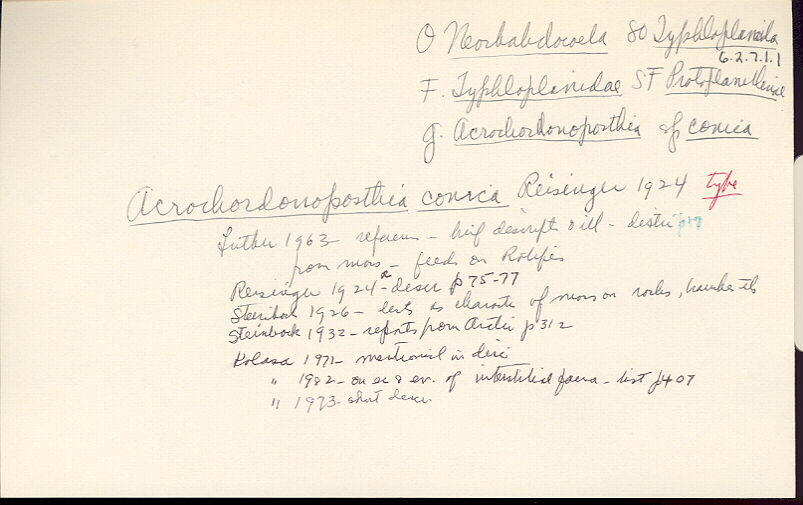 O Neorhabdocoela SO Typhloplanoida
6.2.7.1.1
F. Typhloplanidae SF Protoplanellinae
g. Acrochordonoposthia sp conica
Acrochordonoposthia conica Reisinger 1924 type
Luther 1963 - references - brief descript & ill - distri
from moss - feeds on Rotifers
Reisinger 1924a - descr p 75-77
Steinbock 1926 - lists as characte of moss on rocks,
Steinbock 1932 - reports from Arctic p 312
Kolasa 1971 - mentioned in disc
" 1982 - on ec & ev. of interstitial fauna - list p407
" 1973 - short descr.